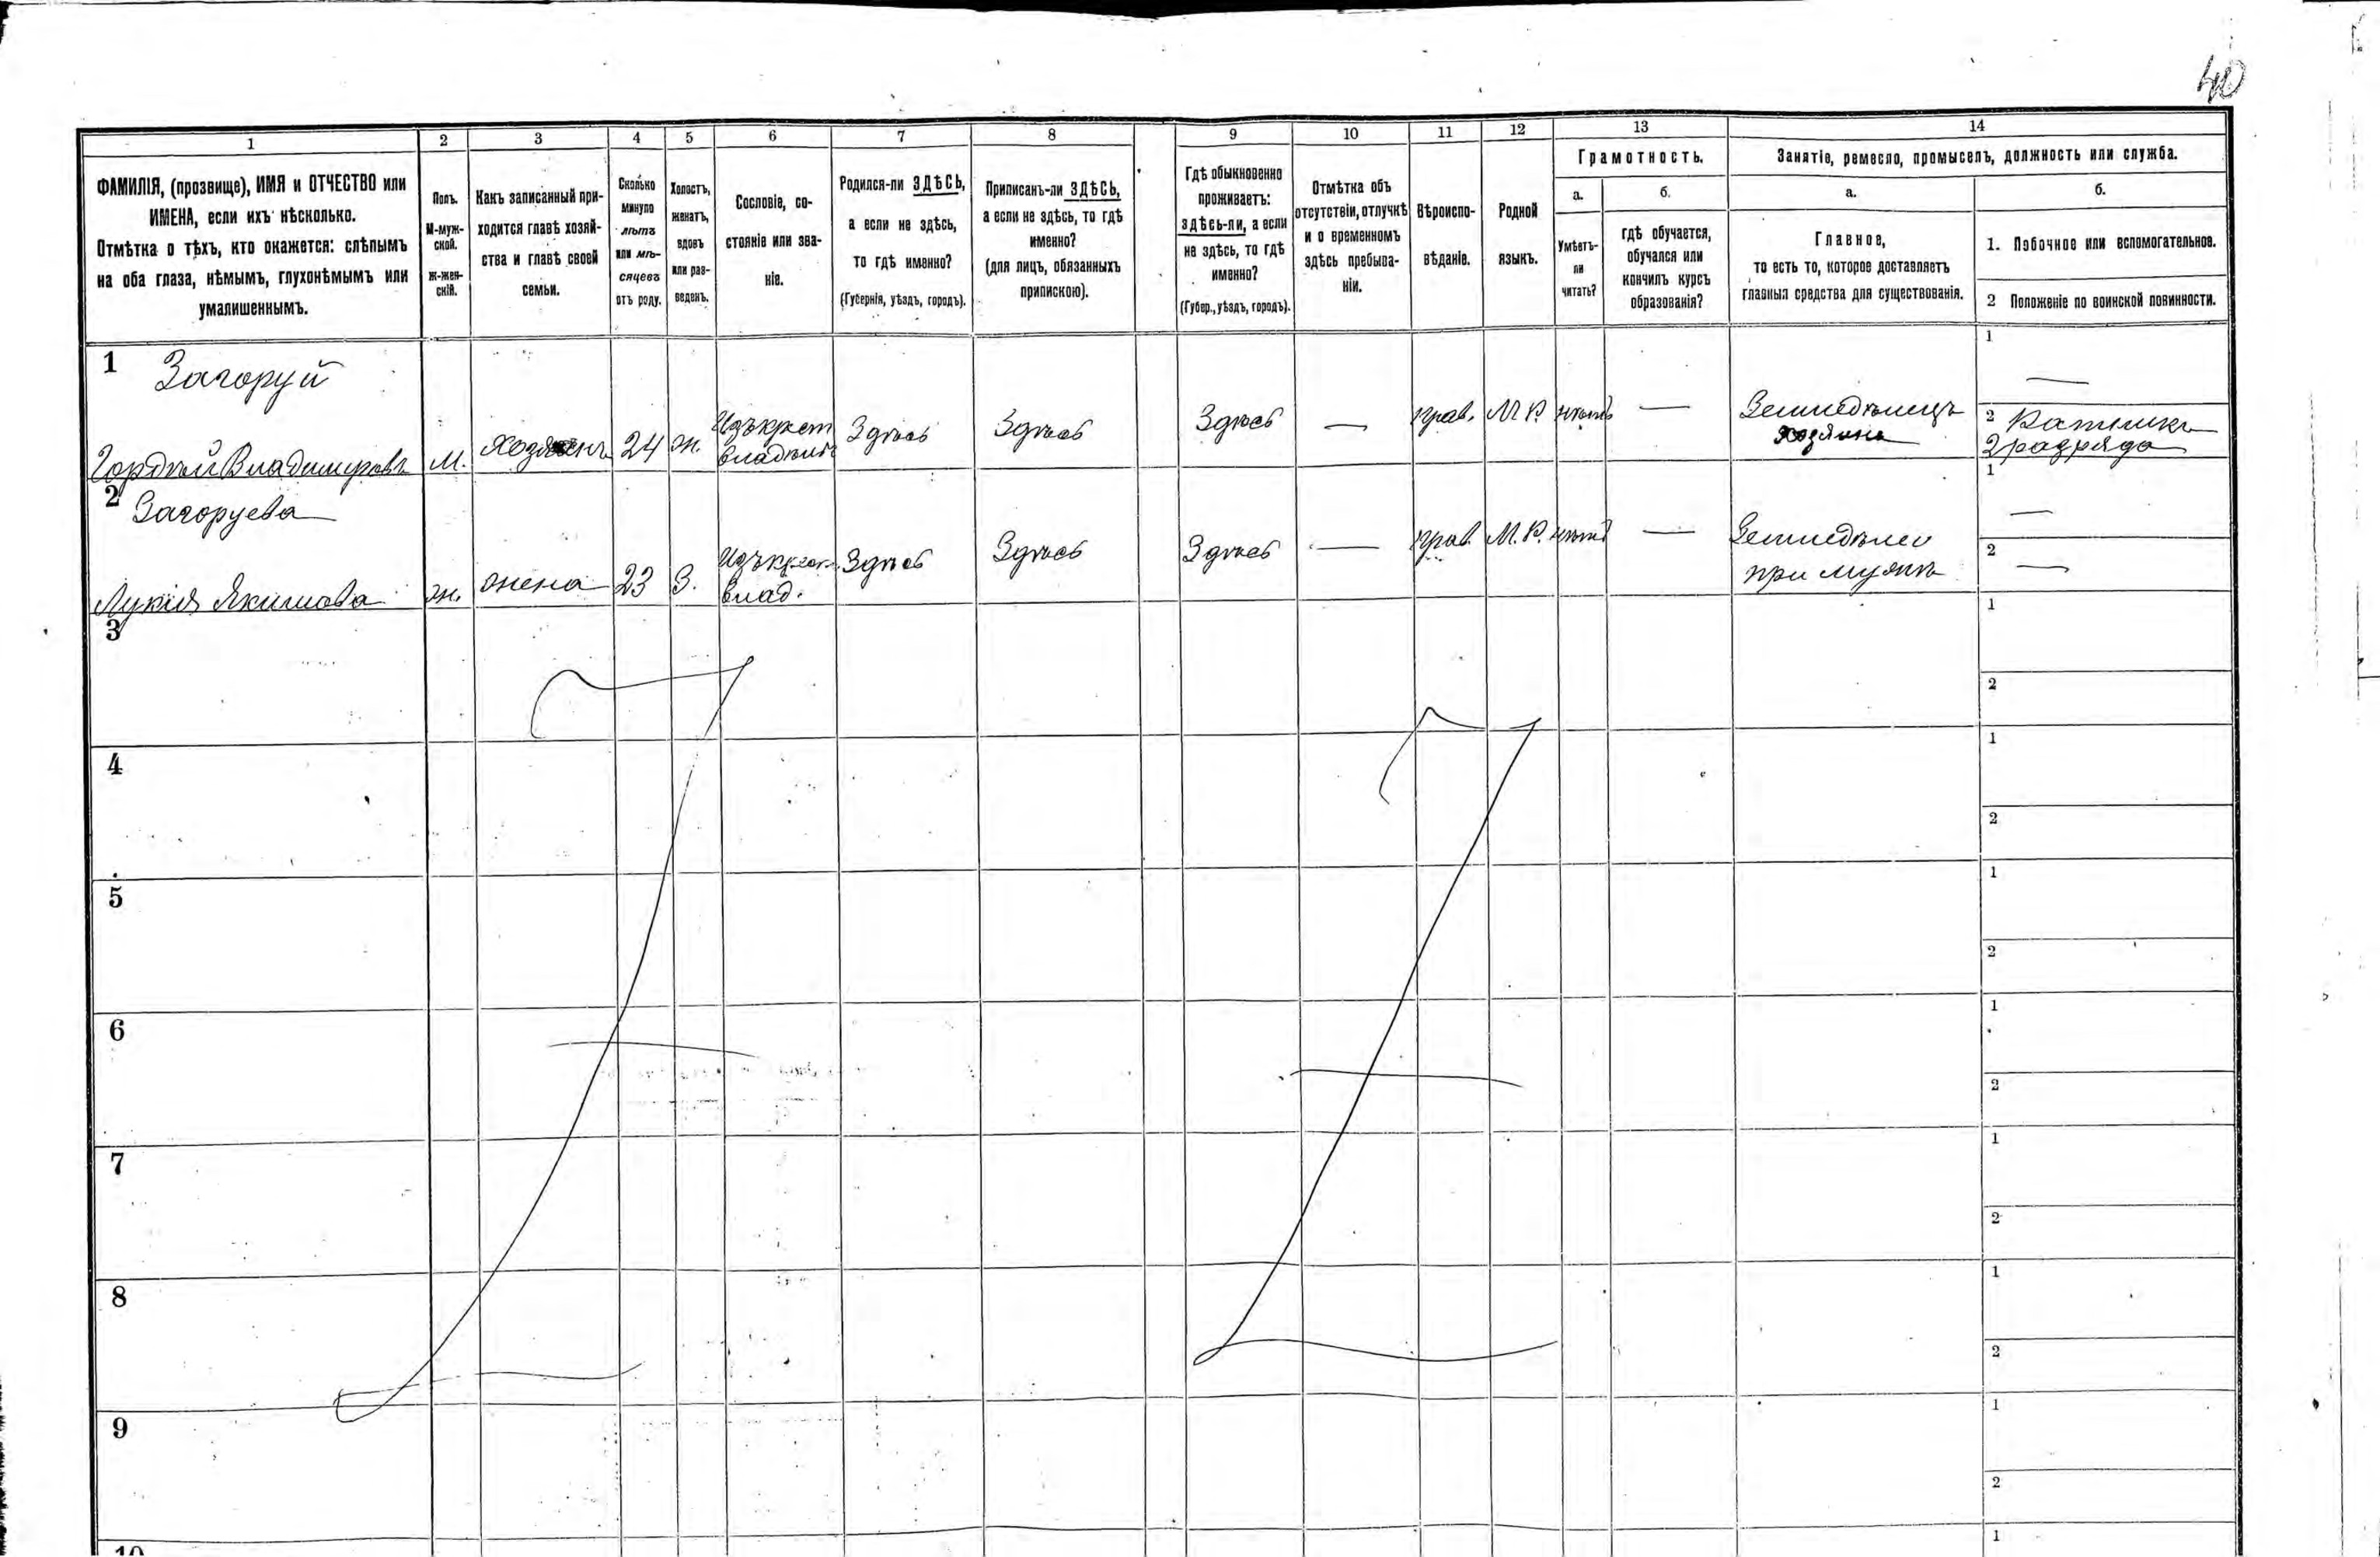 40
1
2
3
4
5
6
7
8
9
10
11
12
13
14
ФАМИЛІЯ, (прозвище), ИМЯ и ОТЧЕСТВО или
ИМЕНА, если ихъ нѣсколько.
Отмѣтка о тѣхъ, кто окажется: слѣпымъ
на оба глаза, нѣмымъ, глухонѣмымъ или
умалишеннымъ.
Полъ.
М-муж-
ской.
ж-жен-
скій.
Какъ записанный при-
ходится главѣ хозяй-
ства и главѣ своей
семьи.
Сколько
минуло
лѣтъ
или мѣ-
сяцевъ
отъ роду.
Холостъ,
женатъ,
вдовъ
или раз-
веденъ.
Сословіе, со-
стояніе или зва-
ніе.
Родился-ли ЗДѢСЬ,
а если не здѣсь,
то гдѣ именно?
(Губернія, уѣздъ, городъ).
Приписанъ-ли ЗДѢСЬ,
а если не здѣсь, то гдѣ
именно?
(для лицъ, обязанныхъ
припискою).
Гдѣ обыкновенно
проживаетъ:
здѣсь-ли, а если
не здѣсь, то гдѣ
именно?
(Губер., уѣздъ, городъ).
Отмѣтка объ
отсутствіи, отлучкѣ
и о временномъ
здѣсь пребыва-
ніи.
Вѣроиспо-
вѣданіе.
Родной
языкъ.
Грамотность.
а.
Умѣетъ-
ли
читать?
б.
гдѣ обучается,
обучался или
кончилъ курсъ
образованія?
Занятіе, ремесло, промыселъ, должность или служба.
а.
Главное,
то есть то, которое доставляетъ
главныя средства для существованія.
б.
1. Побочное или вспомогательное.
2 Положеніе по воинской повинности.
1
Загоруй
Гордѣй Владимировъ
М.
Хозяинъ
24
ж.
Изъ крест
владѣльч
Здѣсь
Здѣсь
Здѣсь
—
прав.
М Р.
нѣтъ
—
Земледѣлецъ
хозяинъ
1
—
2 Ратникъ
2 разряда
2
Загоруева
Лукія Якимова
ж.
жена
23
З.
Изъ крест.
влад.
Здѣсь
Здѣсь
Здѣсь
—
прав.
М. Р.
нѣтъ
—
при мужѣ
1
—
2
—
3
1
2
4
1
2
5
1
2
6
1
2
7
1
2
8
1
2
9
1
2
10
1